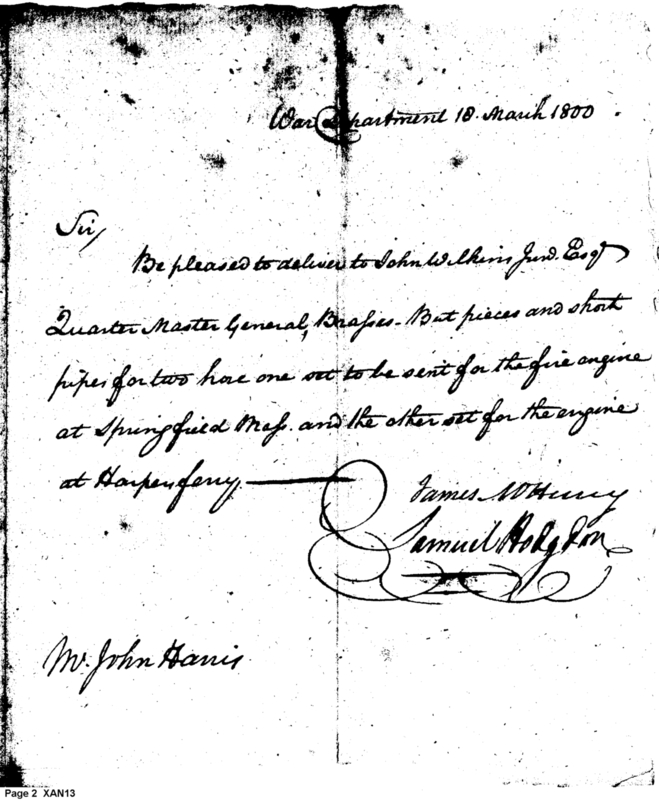 War Department 18. March 1800
Sir,
Be pleased to deliver to John Wilkins Junr. Esqr
Quarter Master General, Brasses. But pieces and short
pipes for two hose one set to be sent for the fire engine
at Springfield Mass. and the other set for the engine
at Harpersferry.
James McHenry
Samuel Hodgdon
Mr. John Harris
Page 2 XAN13